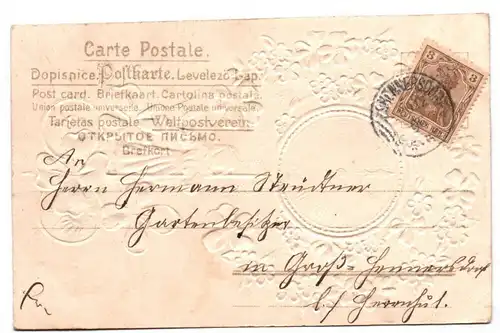 Carte Postale.
Dopisnice. Postkarte. Levelező-Lap.
Post card. Briefkaart. Cartolina postale.
Union postale universelle. Unione Postale universale.
Tarjetas postale Weltpostverein.
ОТКРЫТОЕ ПИСЬМО.
Brefkort
3
3
An
Herrn Hermann Steudtner
Gartenbesitzer
in Groß-Hennersdorf
b/ Herrnhut.